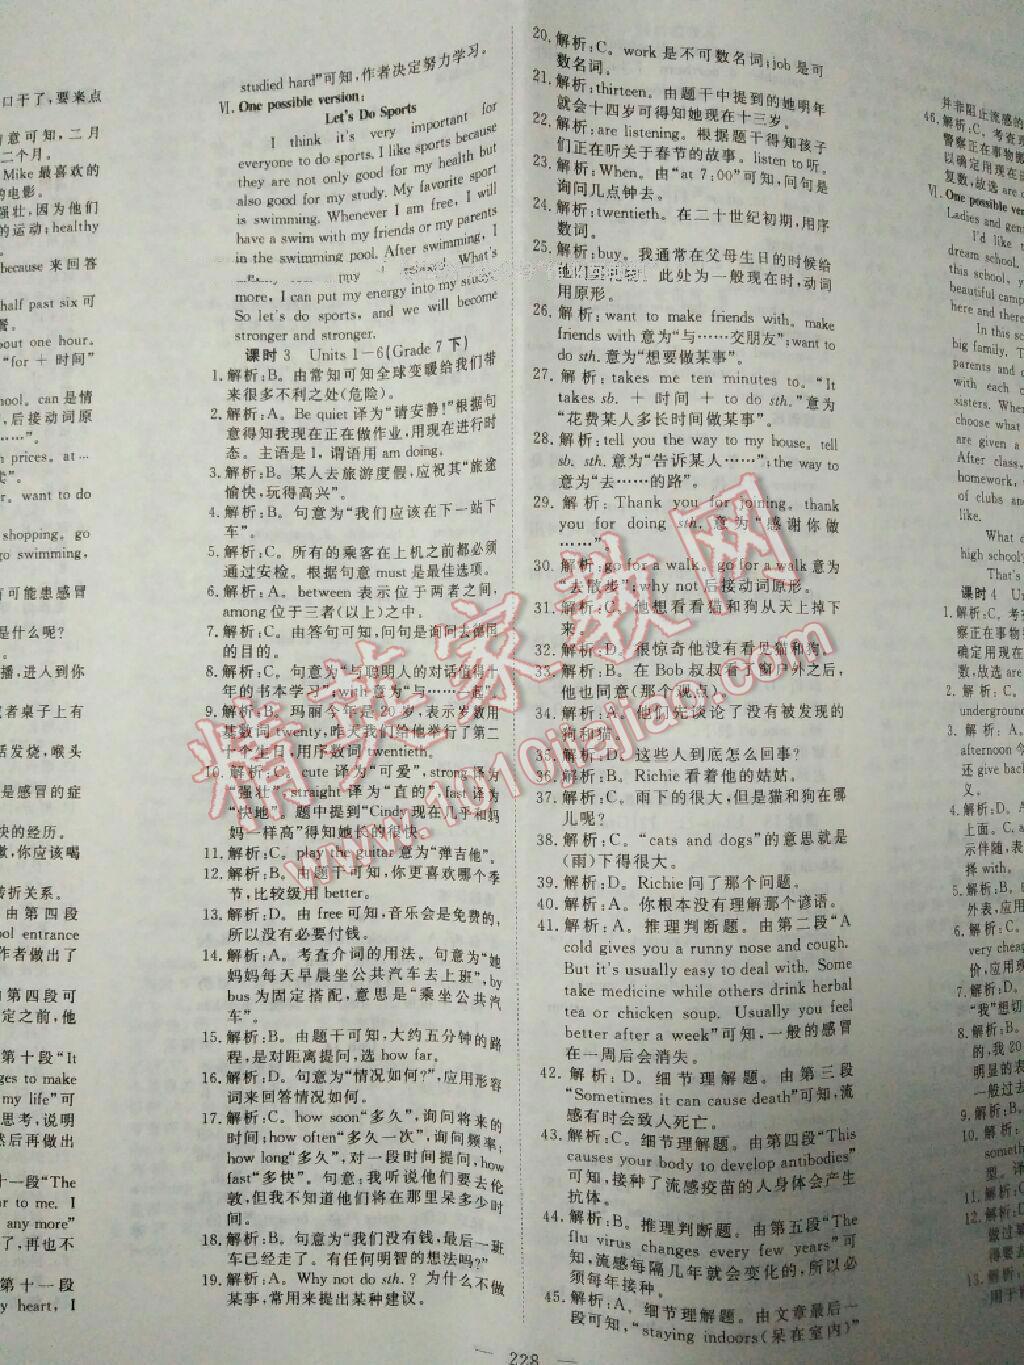 口干了,要来点
意可知,二月
二个月。
Mike 最喜欢的
的电影。
强壮,因为他们
的运动;healthy
because 来回答
half past six 可
餐。
about one hour.
“for + 时间”
school. can是情
,后接动词原
……”。
h prices. at…
卖”。
r. want to do
shopping. go
go swimming,
有可能患感冒
是什么呢?
播,进入到你
或者桌子上有
话发烧,喉头
是感冒的症
快的经历。
激,你应该喝
转折关系。
由第四段
ool entrance
作者做出了
由第四段可
定之前,他
第十段“It
ges to make
my life”可
思考,说明
然后再做出
十一段“The
ar to me. I
any more”
了,再也不
第十一段
y heart, I
studied hard”可知,作者决定努力学习。
Ⅵ. One possible version:
Let's Do Sports
I think it's very important for
everyone to do sports. I like sports because
they are not only good for my health but
also good for my study. My favorite sport
is swimming. Whenever I am free, I will
have a swim with my friends or my parents
in the swimming pool. After swimming, I
my What's
more, I can put my energy into my study.
So let's do sports, and we will become
stronger and stronger.
课时 3 Units 1-6(Grade 7 下)
1. 解析:B。由常知可知全球变暖给我们带
来很多不利之处(危险)。
2. 解析:A。Be quiet 译为“请安静!”根据句
意得知我现在正在做作业,用现在进行时
态。主语是 I,谓语用 am doing.
3. 解析:B。某人去旅游度假,应祝其“旅途
愉快,玩得高兴”。
4. 解析:B。句意为“我们应该在下一站下
车”。
5. 解析:C。所有的乘客在上机之前都必须
通过安检。根据句意 must 是最佳选项。
6. 解析:A。between 表示位于两者之间,
among 位于三者(以上)之中。
7. 解析:C。由答句可知,问句是询问去德国
的目的。
8. 解析:C。句意为“与聪明人的对话值得十
年的书本学习”;with 意为“与……一起”。
9. 解析:B。玛丽今年是 20 岁,表示岁数用
基数词 twenty,昨天我们给他举行了第二
十个生日,用序数词 twentieth.
10. 解析:C。cute 译为“可爱”,strong 译为
“强壮”,straight 译为“直的”,fast 译为
“快地”。题中提到“Cindy 现在几乎和妈
妈一样高”得知她长的很快。
11. 解析:C。play the guitar 意为“弹吉他”。
12. 解析:B。由题干可知,你更喜欢哪个季
节,比较级用 better.
13. 解析:D。由 free 可知,音乐会是免费的,
所以没有必要付钱。
14. 解析:A。考查介词的用法。句意为“她
妈妈每天早晨坐公共汽车去上班”,by
bus 为固定搭配,意思是“乘坐公共汽
车”。
15. 解析:B。由题干可知,大约五分钟的路
程,是对距离提问,选 how far.
16. 解析:D。句意为“情况如何?”,应用形容
词来回答情况如何。
17. 解析:C。how soon“多久”,询问将来的
时间;how often“多久一次”,询问频率;
how long“多久”,对一段时间提问,how
fast“多快”。句意:我听说他们要去伦
敦,但我不知道他们将在那里呆多少时
间。
18. 解析:B。句意为“我们没有钱,最后一班
车已经走了。有任何明智的想法吗?”
19. 解析:A。Why not do sth.? 为什么不做
某事,常用来提出某种建议。
20. 解析:C。work 是不可数名词;job 是可
数名词。
21. 解析:thirteen。由题干中提到的她明年
就会十四岁可得知她现在十三岁。
22. 解析:are listening。根据题干得知孩子
们正在听关于春节的故事。listen to 听。
23. 解析:When。由“at 7:00”可知,问句是
询问几点钟去。
24. 解析:twentieth。在二十世纪初期,用序
数词。
25. 解析:buy。我通常在父母生日的时候给
此处为一般现在时,动词
用原形。
26. 解析:want to make friends with。make
friends with 意为“与……交朋友”;want to
do sth. 意为“想要做某事”。
27. 解析:takes me ten minutes to。“It
takes sb. + 时间 + to do sth.”意为
“花费某人多长时间做某事”。
28. 解析:tell you the way to my house。tell
sb. sth. 意为“告诉某人……”;the way to
意为“去……的路”。
29. 解析:Thank you for joining。thank
you for doing sth. 意为“感谢你做
……”。
30. 解析:go for a walk。go for a walk 意为
“去散步”;why not 后接动词原形。
31. 解析:C。他想看看猫和狗从天上掉下
来。
32. 解析:D。很惊奇他没有看见猫和狗。
33. 解析:B。在 Bob 叔叔看了窗户外之后,
他也同意(那个观点)。
34. 解析:A。他们先谈论了没有被发现的
狗和猫。
35. 解析:D。这些人到底怎么回事?
36. 解析:B。Richie 看着他的姑姑。
37. 解析:C。雨下的很大,但是猫和狗在哪
儿呢?
38. 解析:C。“cats and dogs”的意思就是
(雨)下得很大。
39. 解析:D。Richie 问了那个问题。
40. 解析:A。你根本没有理解那个谚语。
41. 解析:A。推理判断题。由第二段“A
cold gives you a runny nose and cough.
But it's usually easy to deal with. Some
take medicine while others drink herbal
tea or chicken soup. Usually you feel
better after a week”可知,一般的感冒
在一周后会消失。
42. 解析:D。细节理解题。由第三段
“Sometimes it can cause death”可知,流
感有时会致人死亡。
43. 解析:C。细节理解题。由第四段“This
causes your body to develop antibodies”
可知,接种了流感疫苗的人身体会产生
抗体。
44. 解析:B。推理判断题。由第五段“The
flu virus changes every few years”可
知,流感每隔几年就会变化的,所以必
须每年接种。
45. 解析:A。细节理解题。由文章最后一
段可知,“staying indoors(呆在室内)”
并非阻止流感的
46. 解析:C。考查现
警察正在事物
以确定用现在
复数,故选 are
Ⅵ. One possible version
Ladies and gen
I'd like
dream school.
this school, y
beautiful camp
here and there
In this sc
big family. T
parents and
with each
sisters. When
choose what
are given a
After class,
homework,
of clubs and
like.
What
high school?
That's
课时 4 U
1. 解析:C。考
察正在事物
确定用现在
数,故选 are
2. 解析:C。
underground
3. 解析:A。
afternoon 今
还 give back
义。
4. 解析:D。
上面。C.
示伴随,表
择 with.
5. 解析:B。
外表,应用
6. 解析:C。
very cheap
价,应用现
7. 解析:D。
“我”想切
8. 解析:B。
的,我 20
明显的表
一般过去
9. 解析:
10. 解析:
someth
型。译
11. 解析:C
12. 解析:D
做过某
得要去
13. 解析:
用于
228
精英家教网
www.1010jiajiao.com